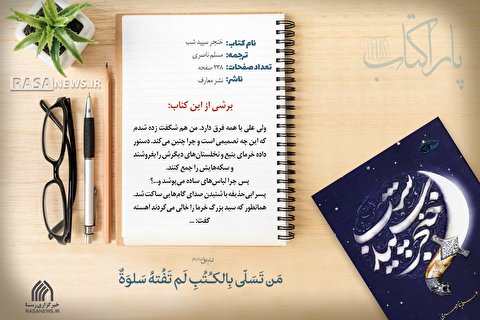 پاراکتاب
RASANEWS.IR
نام کتاب: خنجر سپید شب
ترجمه: مسلم ناصری
تعداد صفحات: ۲۳۸ صفحه
ناشر: نشر معارف
برشی از این کتاب:
ولی علی با همه فرق دارد. من هم شگفت زده شدم
که این چه تصمیمی است و چرا چنین می‌کند. دستور
داده خرمای ینبع و نخلستان‌های دیگرش را بفروشند
و سکه‌هایش را جمع کنند.
پس چرا لباس‌های ساده می‌پوشد و...؟
پسر ابی‌حذیفه با شنیدن صدای گام‌هایی ساکت شد.
همانطور که سبد بزرگ خرما را خالی می‌کردند آهسته
گفت: ...
خنجر سپید شب
مَن تَسَلّی بِالکُتُبِ لَم تَفُتهُ سَلوَةٌ
خبرگزاری رسا
RASANEWS.IR